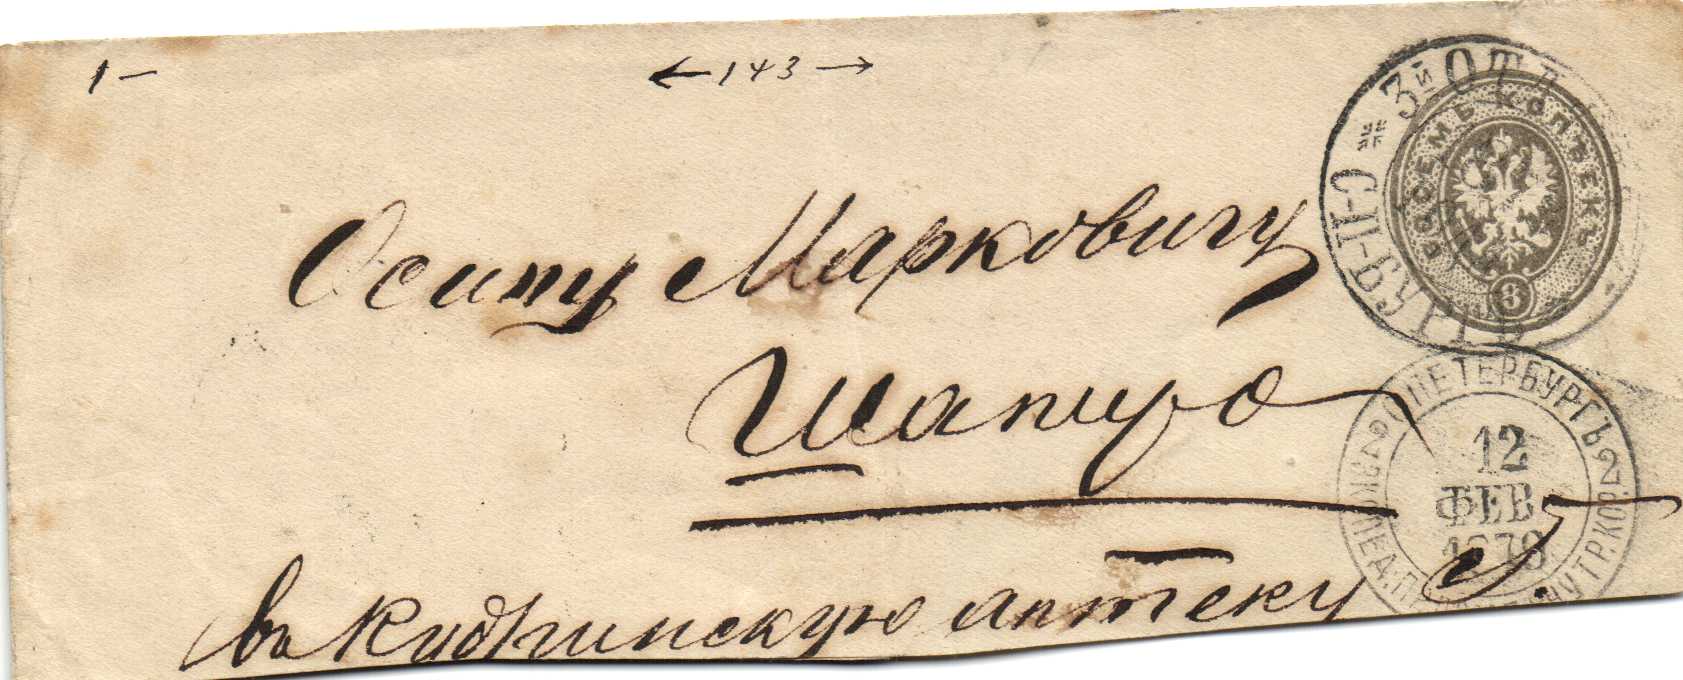 1 —
← 143 →
3й ОТД
С-П-Б
ВОСЕМЬ КОПѢЕКЪ
8
Осипу Марковичу
Шапиро
С. ПЕТЕРБУРГЪ 2
12
ФЕВ.
1878
въ Кудринскую аптеку